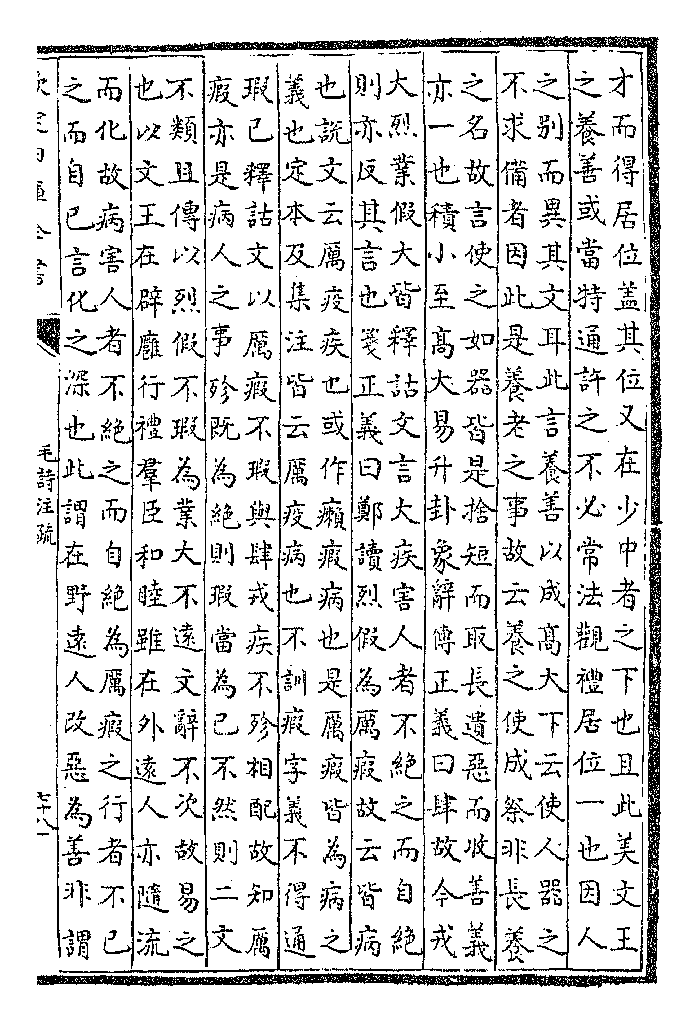 才而得居位蓋其位又在少中者之下也且此美文王
之養善或當特通許之不必常法觀禮居位一也因人
之别而異其文耳此言養善以成髙大下云使人器之
不求備者因此是養老之事故云養之使成祭非長養
之名故言使之如器皆是捨短而取長遺惡而收善義
亦一也積小至髙大易升卦象辭傳正義曰肆故今戎
大烈業假大皆釋詁文言大疾害人者不絶之而自絶
則亦反其言也箋正義曰鄭讀烈假為厲瘕故云皆病
也説文云厲疫疾也或作癩瘕病也是厲瘕皆為病之
義也定本及集注皆云厲疫病也不訓瘕字義不得通
瑕已釋詁文以厲瘕不瑕與肆戎疾不殄相配故知厲
瘕亦是病人之事殄既為絶則瑕當為已不然則二文
不類且傳以烈假不瑕為業大不遠文辭不次故易之
也以文王在辟廱行禮羣臣和睦雖在外遠人亦隨流
而化故病害人者不絶之而自絶為厲瘕之行者不已
之而自已言化之深也此謂在野遠人改惡為善非謂
欽定四庫全書
毛詩注疏
七十八